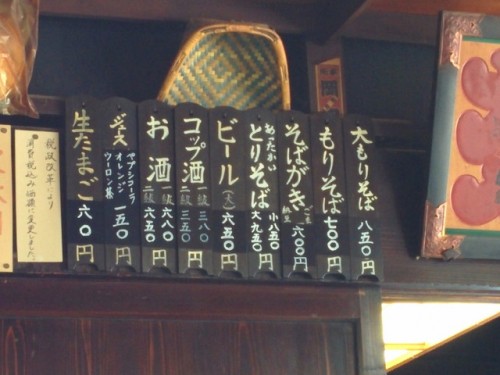 大もりそば 八五〇円
もりそば 七〇〇円
そばがき 六〇〇円
あったかい
とりそば 小八五〇 大九五〇 円
ビール(大) 六五〇円
コップ酒 一級 三八〇 二級 三五〇 円
お酒 一級 六八〇 二級 六五〇 円
ジュース ペプシコーラ オレンジ ウーロン茶 一五〇円
生たまご 六〇円
税政改革により
消費税込み価格に変更しました。